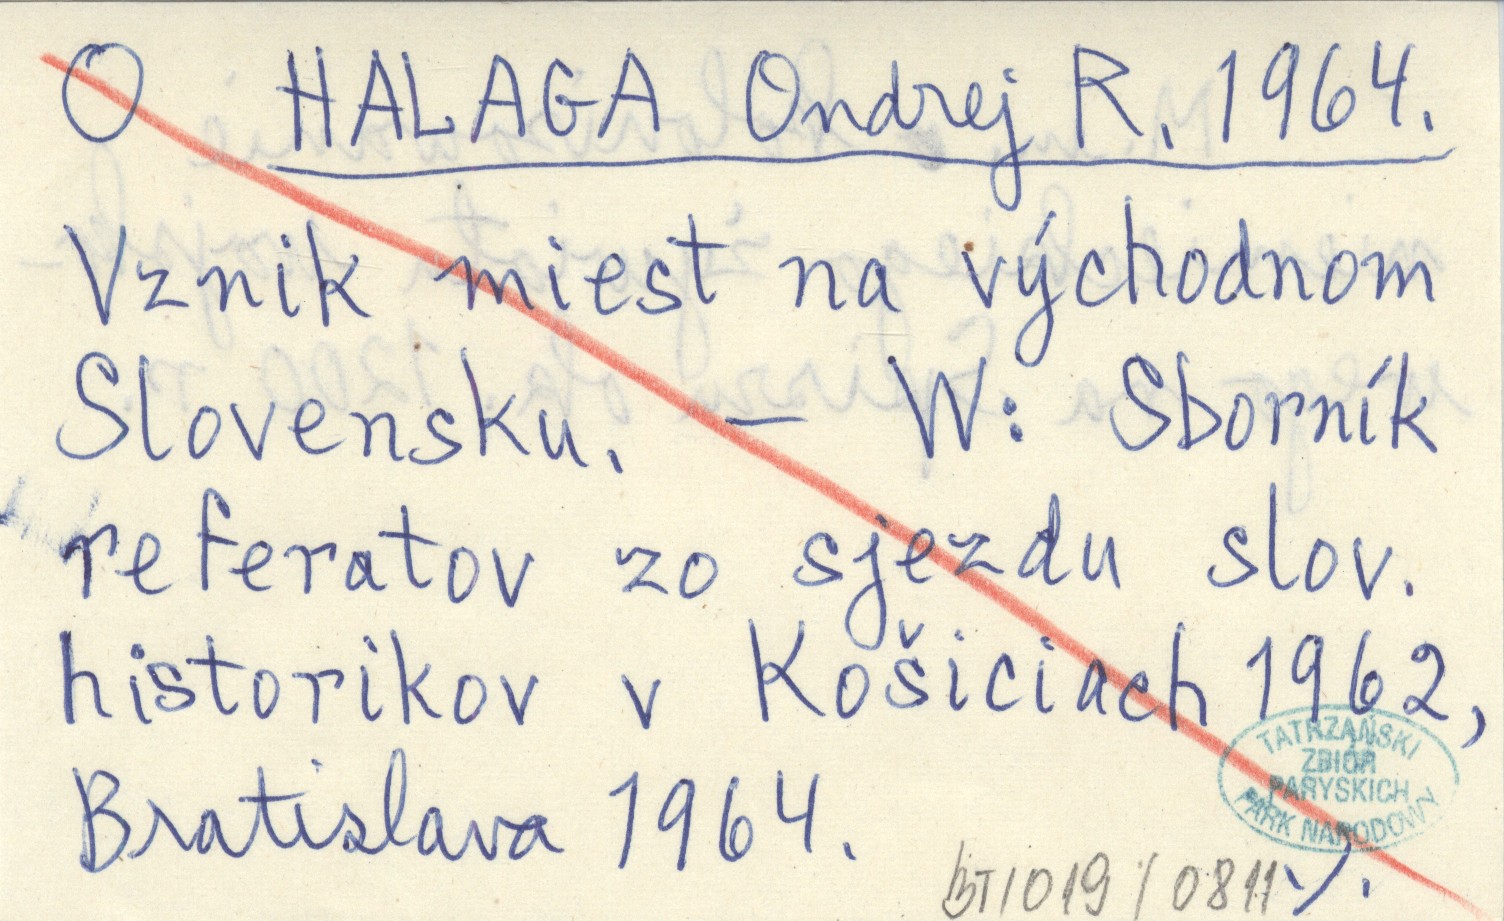 O HALAGA Ondrej R. 1964.
Vznik miest na východnom
Slovensku. — W: Sborník
referatov zo sjezdu slov.
historikov v Košiciach 1962,
Bratislava 1964.
TATRZAŃSKI
ZBIÓR
PARYSKICH
PARK NARODOWY
BT/019/0811